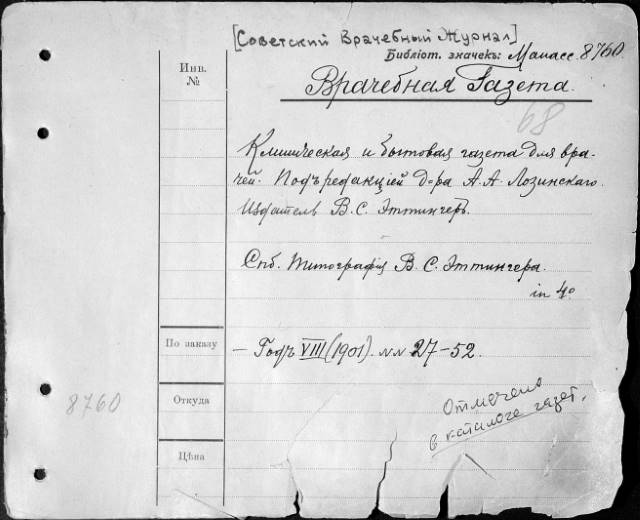 [Советский Врачебный Журнал]
Библіот. значекъ: Манасс. 8760
Инв.
№
Врачебная Газета.
68
Клиническая и бытовая газета для вра-
чей. Подъ редакціей д-ра А. А. Лозинскаго.
Издатель В. С. Эттингеръ.
Спб. Типографія В. С. Эттингера.
in 4º
По заказу
– Годъ VIII (1901). №№ 27–52.
8760
Откуда
Отмечено
в каталоге газет.
Цѣна